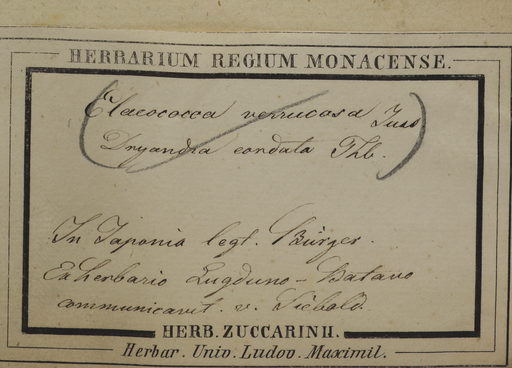 HERBARIUM REGIUM MONACENSE.
Elaeococca verrucosa Juss
Dryandra cordata Thb.
In Japonia legt. Bürger.
Ex herbario Lugduno-Batavo
communicavit v. Siebold.
HERB. ZUCCARINII.
Herbar. Univ. Ludov. Maximil.